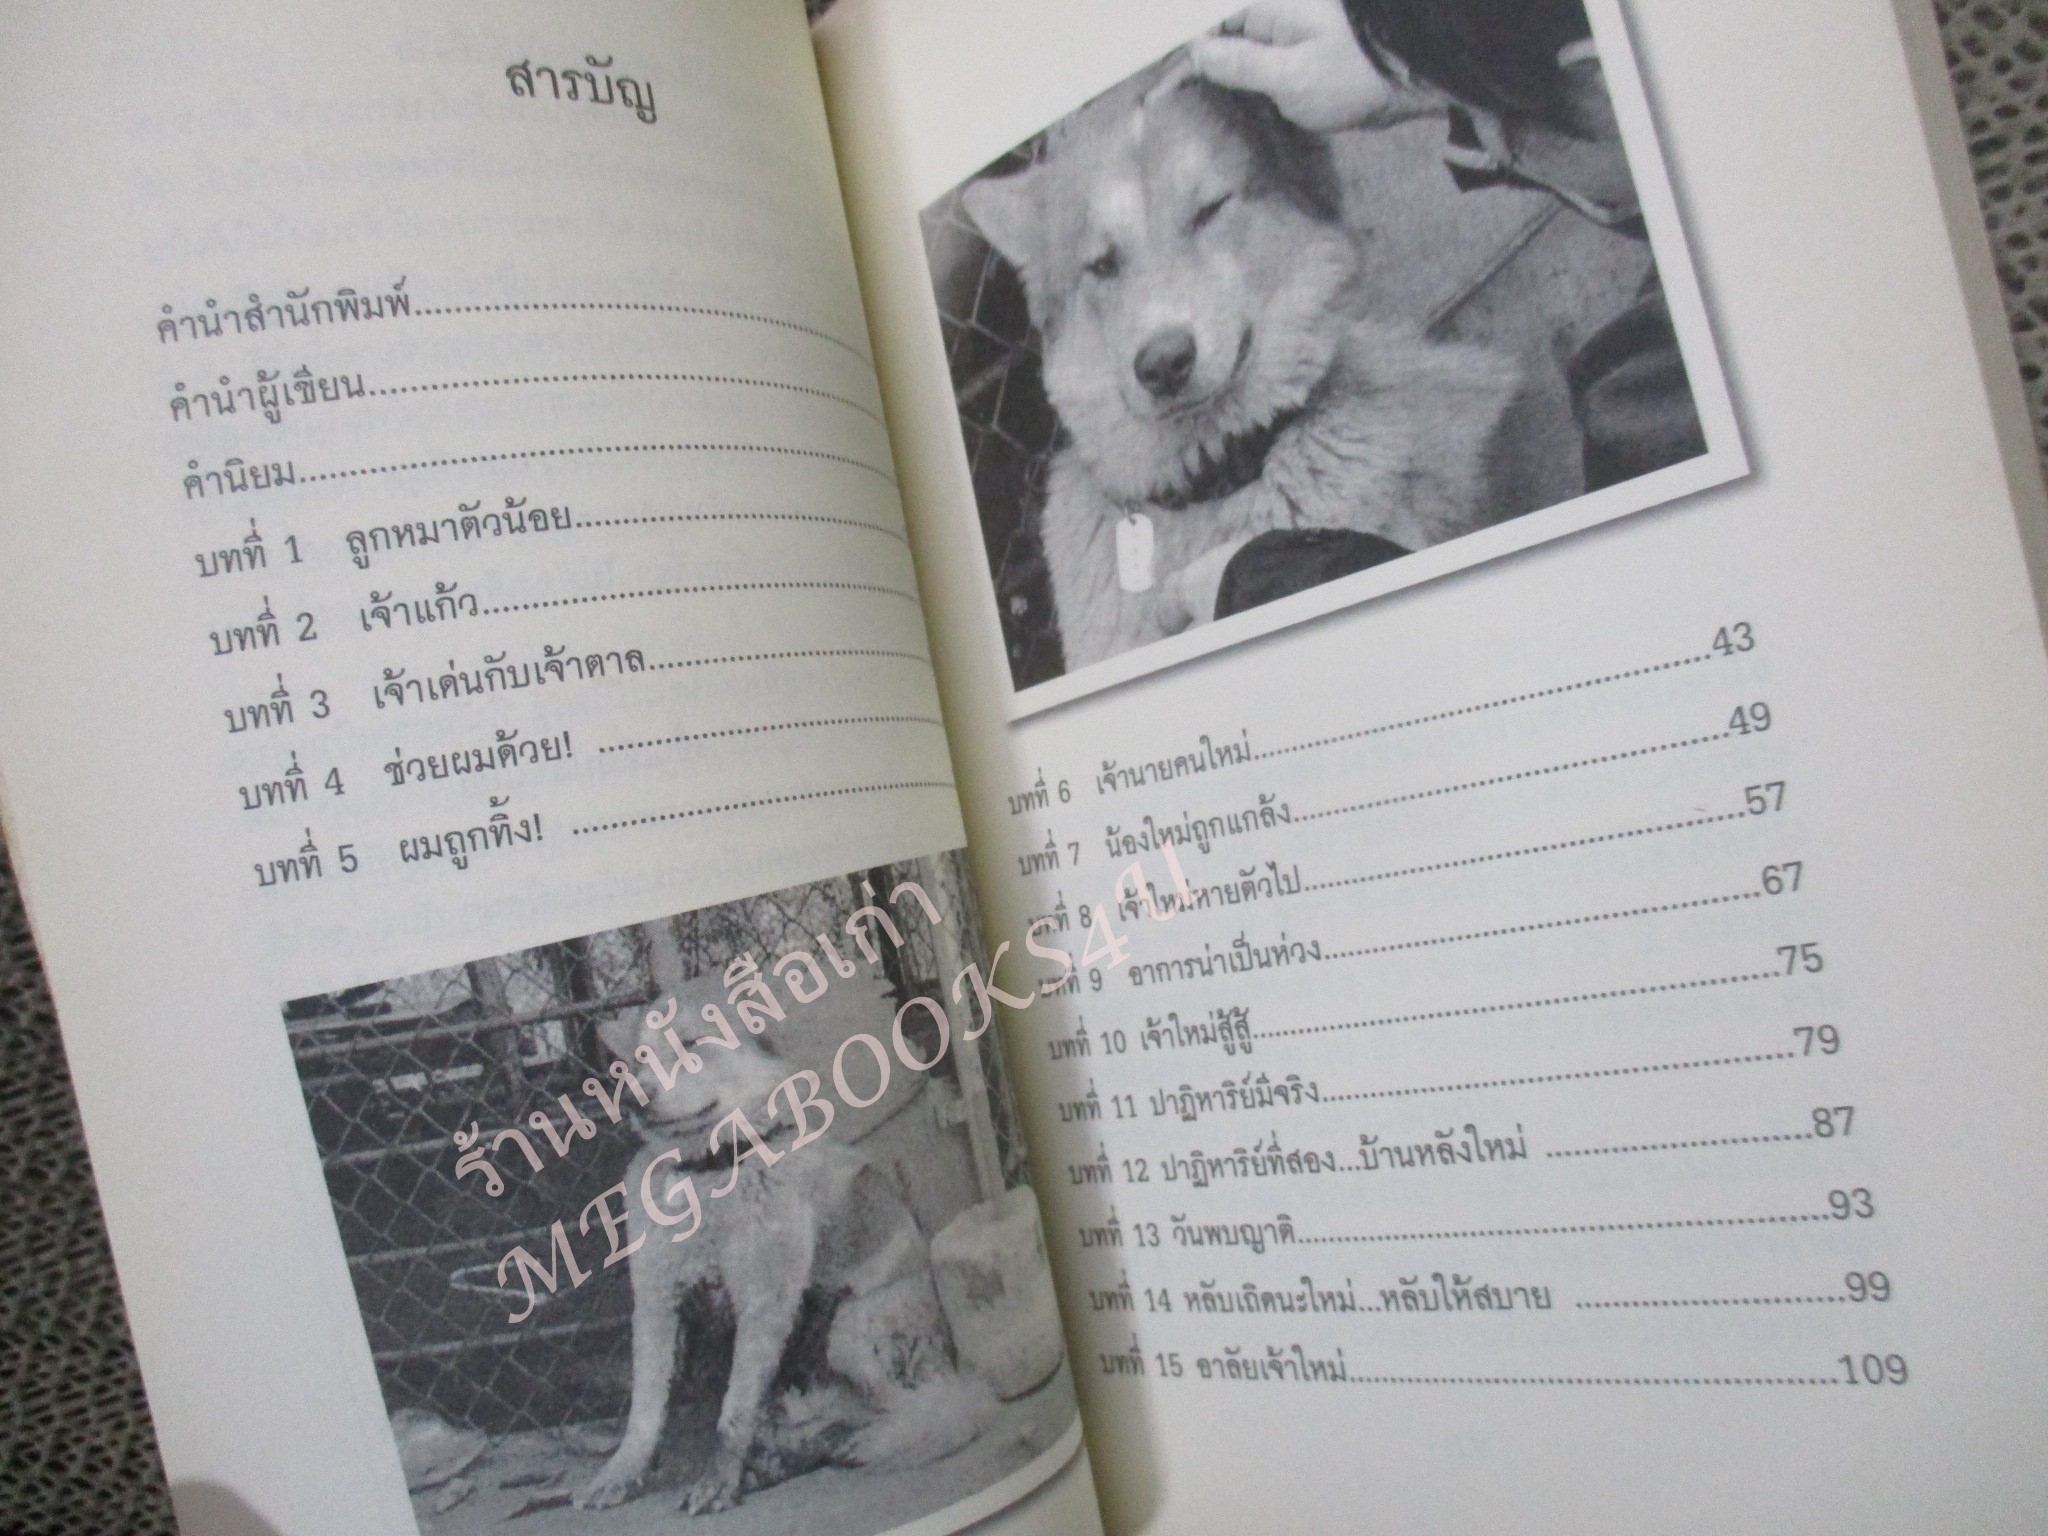 สารบัญ
คำนำสำนักพิมพ์
คำนำผู้เขียน
คำนิยม
บทที่ 1 ลูกหมาตัวน้อย
บทที่ 2 เจ้าแก้ว
บทที่ 3 เจ้าเด่นกับเจ้าตาล
บทที่ 4 ช่วยผมด้วย!
บทที่ 5 ผมถูกทิ้ง!
บทที่ 6 เจ้านายคนใหม่ 43
บทที่ 7 น้องใหม่ถูกแกล้ง 49
บทที่ 8 เจ้าใหม่หายตัวไป 57
บทที่ 9 อาการน่าเป็นห่วง 67
บทที่ 10 เจ้าใหม่สู้สู้ 75
บทที่ 11 ปาฏิหาริย์มีจริง 79
บทที่ 12 ปาฏิหาริย์ที่สอง...บ้านหลังใหม่ 87
บทที่ 13 วันพบญาติ 93
บทที่ 14 หลับเถิดนะใหม่...หลับให้สบาย 99
บทที่ 15 อาลัยเจ้าใหม่ 109
ร้านหนังสือเก่า
MEGABOOKS4U